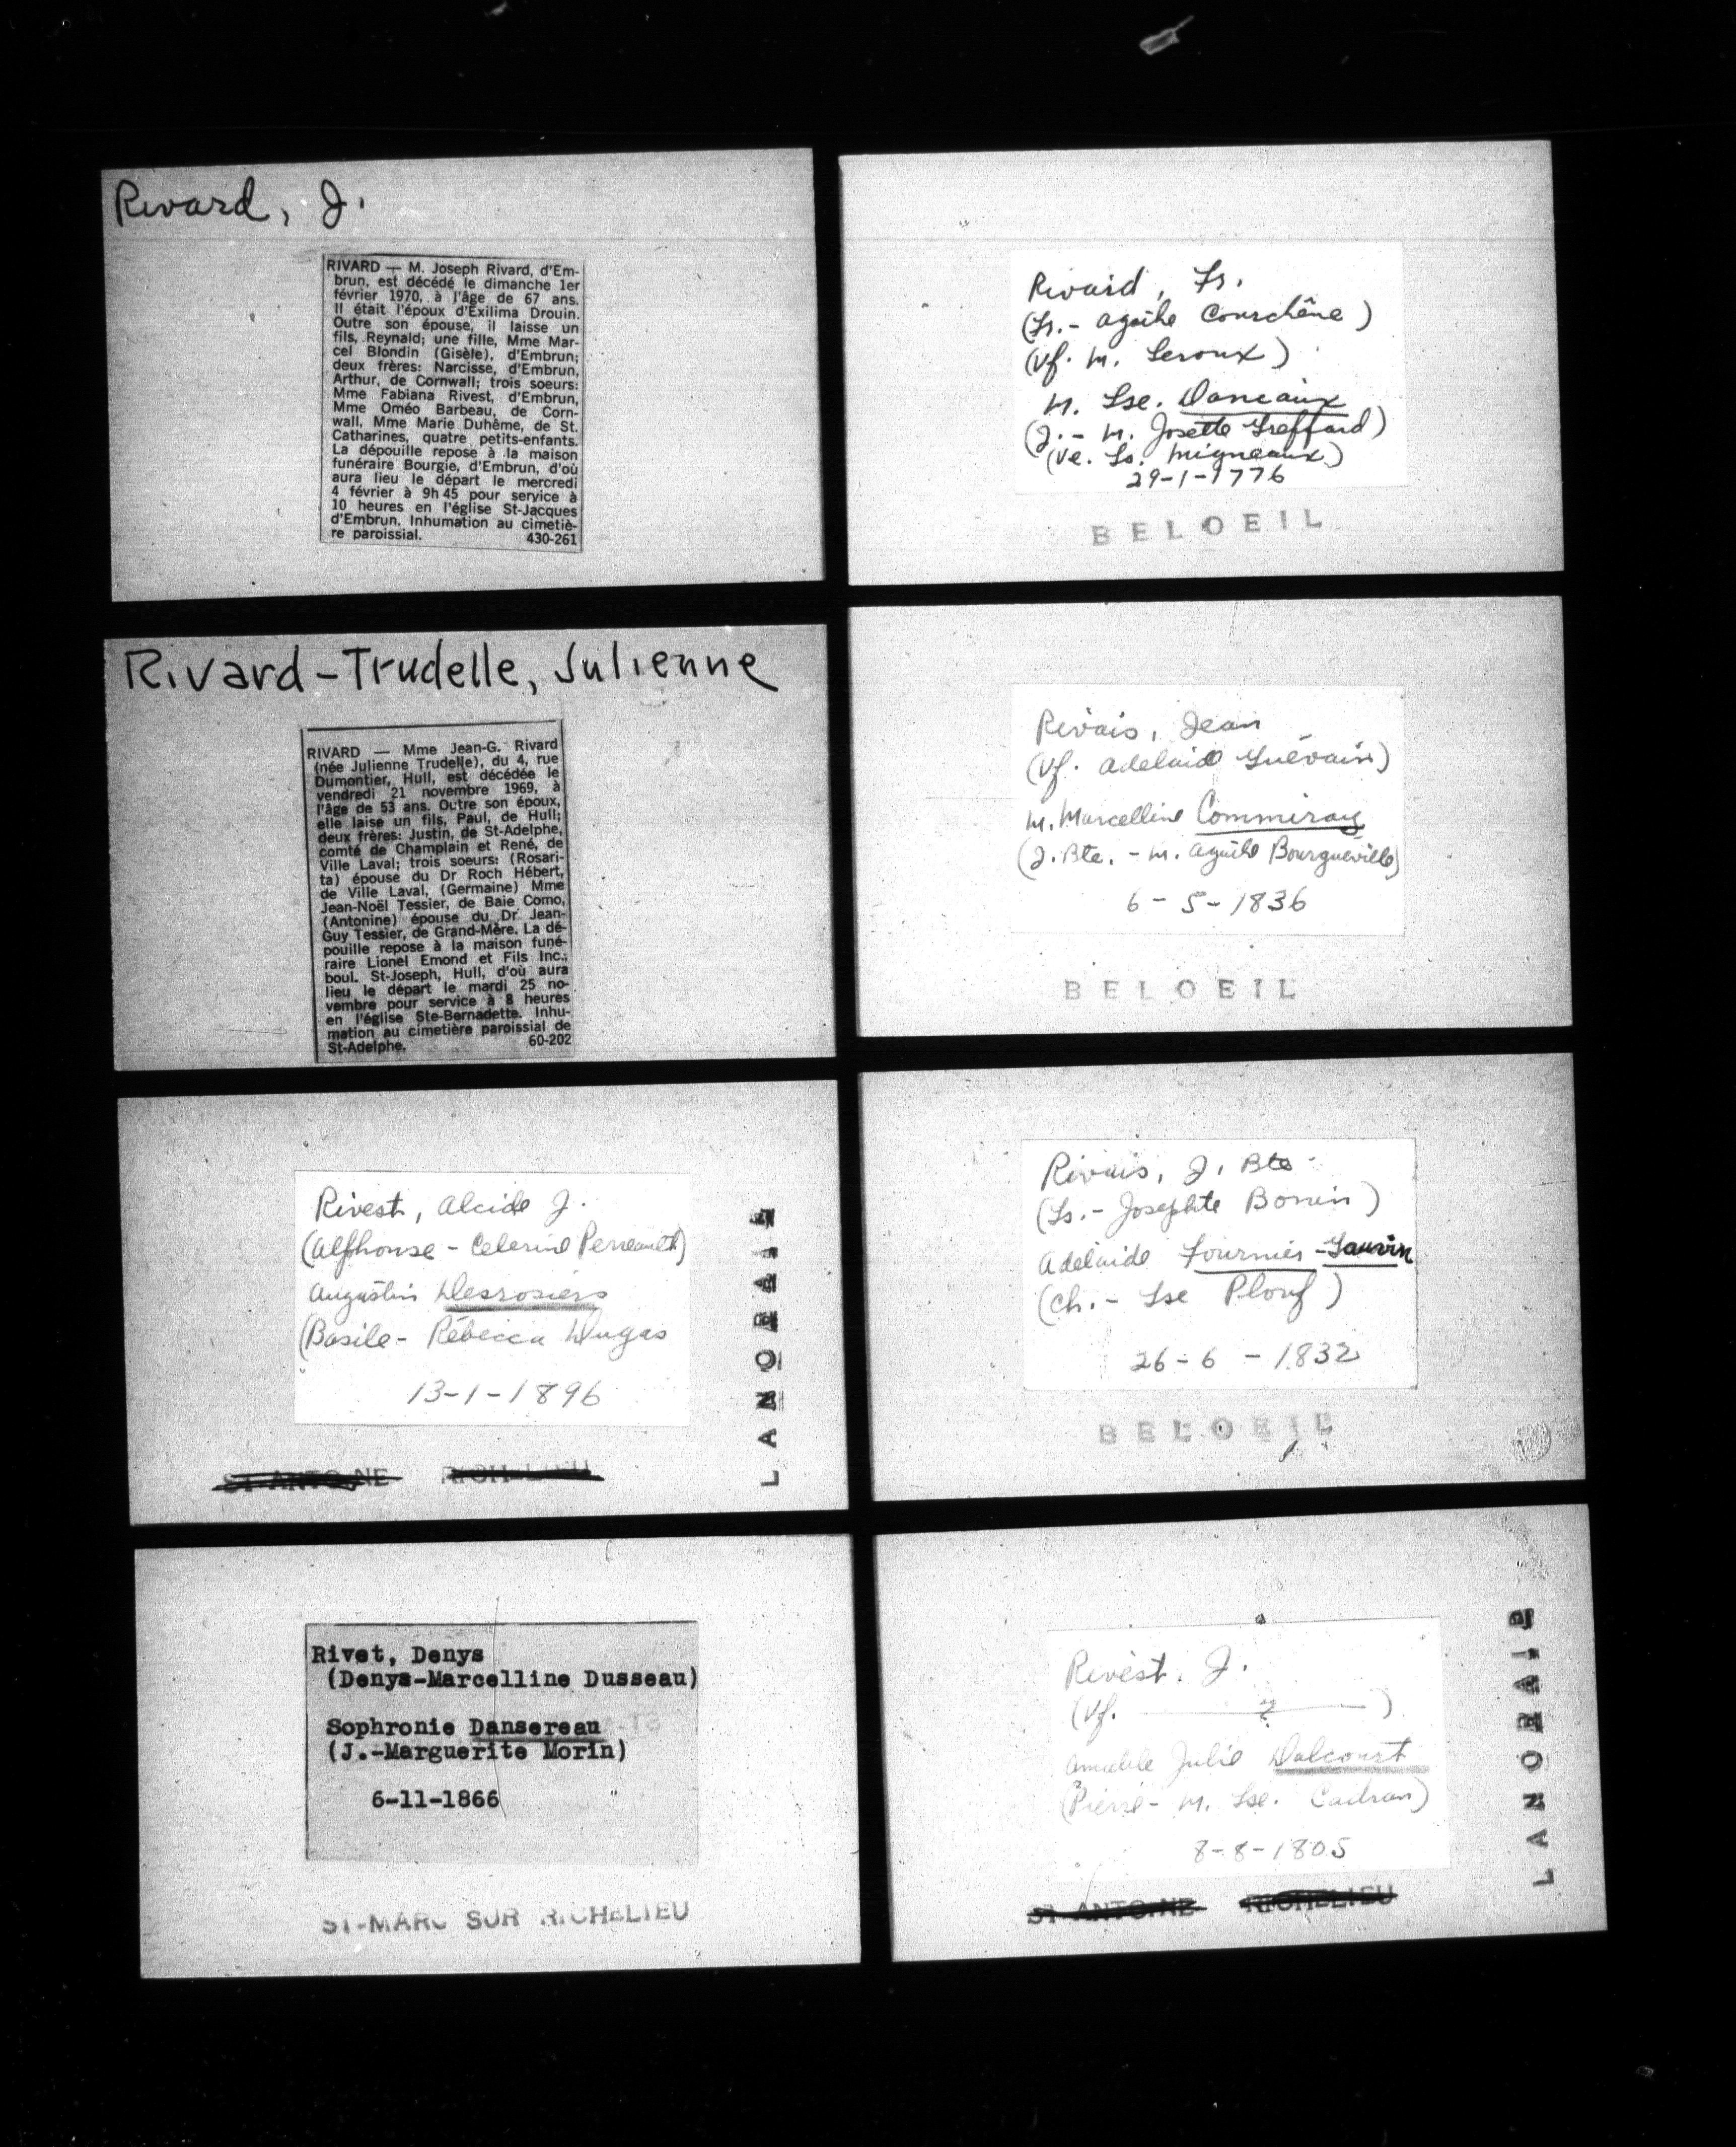 Rivard, J.
RIVARD — M. Joseph Rivard, d'Em-
brun, est décédé le dimanche 1er
février 1970, à l'âge de 67 ans.
Il était l'époux d'Exilima Drouin.
Outre son épouse, il laisse un
fils, Reynald; une fille, Mme Mar-
cel Blondin (Gisèle), d'Embrun;
deux frères: Narcisse, d'Embrun,
Arthur, de Cornwall; trois soeurs:
Mme Fabiana Rivest, d'Embrun,
Mme Oméo Barbeau, de Corn-
wall, Mme Marie Duhême, de St.
Catharines, quatre petits-enfants.
La dépouille repose à la maison
funéraire Bourgie, d'Embrun, d'où
aura lieu le départ le mercredi
4 février à 9h 45 pour service à
10 heures en l'église St-Jacques
d'Embrun. Inhumation au cimetiè-
re paroissial. 430-261
Rivard, Fs.
(Fs. - Agathe Courchêne)
(Vf. M. Leroux)
M. Lse. Daneaux
(J. - M. Josette Greffard)
(Ve. Ls. Migneaux)
29-1-1776
BELOEIL
Rivard-Trudelle, Julienne
RIVARD — Mme Jean-G. Rivard
(née Julienne Trudelle), du 4, rue
Dumontier, Hull, est décédée le
vendredi 21 novembre 1969, à
l'âge de 53 ans. Outre son époux,
elle laise un fils, Paul, de Hull;
deux frères: Justin, de St-Adelphe,
comté de Champlain et René, de
Ville Laval; trois soeurs: (Rosari-
ta) épouse du Dr Roch Hébert,
de Ville Laval, (Germaine) Mme
Jean-Noël Tessier, de Baie Como,
(Antonine) épouse du Dr Jean-
Guy Tessier, de Grand-Mère. La dé-
pouille repose à la maison funé-
raire Lionel Emond et Fils Inc.,
boul. St-Joseph, Hull, d'où aura
lieu le départ le mardi 25 no-
vembre pour service à 8 heures
en l'église Ste-Bernadette. Inhu-
mation au cimetière paroissial de
St-Adelphe. 60-202
Rivais, Jean
(Vf. Adelaide
M. Marcelline Commiray
(J. Bte. - M. Agathe Bourgueville)
6-5-1836
BELOEIL
Rivest, Alcide J.
(Alphonse - Celerine Perreault)
Augustin Desrosiers
(Basile - Rébecca Dugas
13-1-1896
LANORAIE
ST ANTOINE RICHELIEU
Rivais, J. Bte
(Ls. - Josephte Bonin)
Adelaide Fournier-Gauvin
(Ch. - Lse Plouf)
26-6-1832
BELOEIL
Rivet, Denys
(Denys-Marcelline Dusseau)
Sophronie Dansereau
(J.-Marguerite Morin)
6-11-1866
ST-MARC SUR RICHELIEU
Rivest, J.
(Vf. ? )
Amable Julie Dalcourt
(Pierre - M. Lse. Cadran)
8-8-1805
LANORAIE
ST ANTOINE RICHELIEU